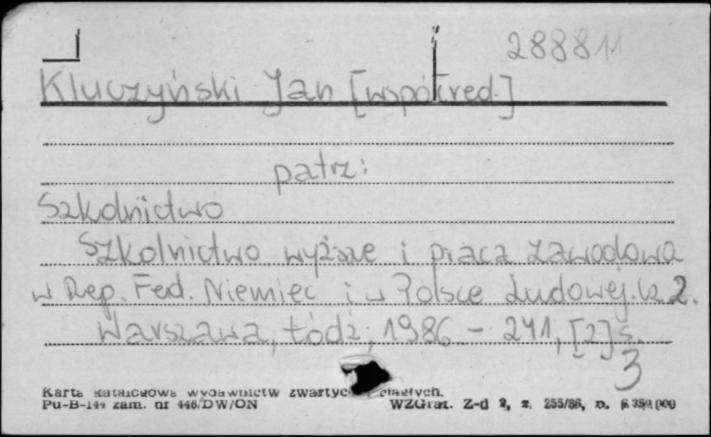 288811
Kluczyński Jan [współred.]
patrz:
Szkolnictwo
Szkolnictwo wyższe i praca zawodowa
w Rep. Fed. Niemiec i w Polsce Ludowej. Cz. 2.
Warszawa, Łódź, 1986. - 241, [2] s.
3
Karta katalogowa wydawnictw zwartych i ciągłych.
Pu-B-144 zam. nr 446/DW/ON WZGraf. Z-d 2, z. 255/86, n.